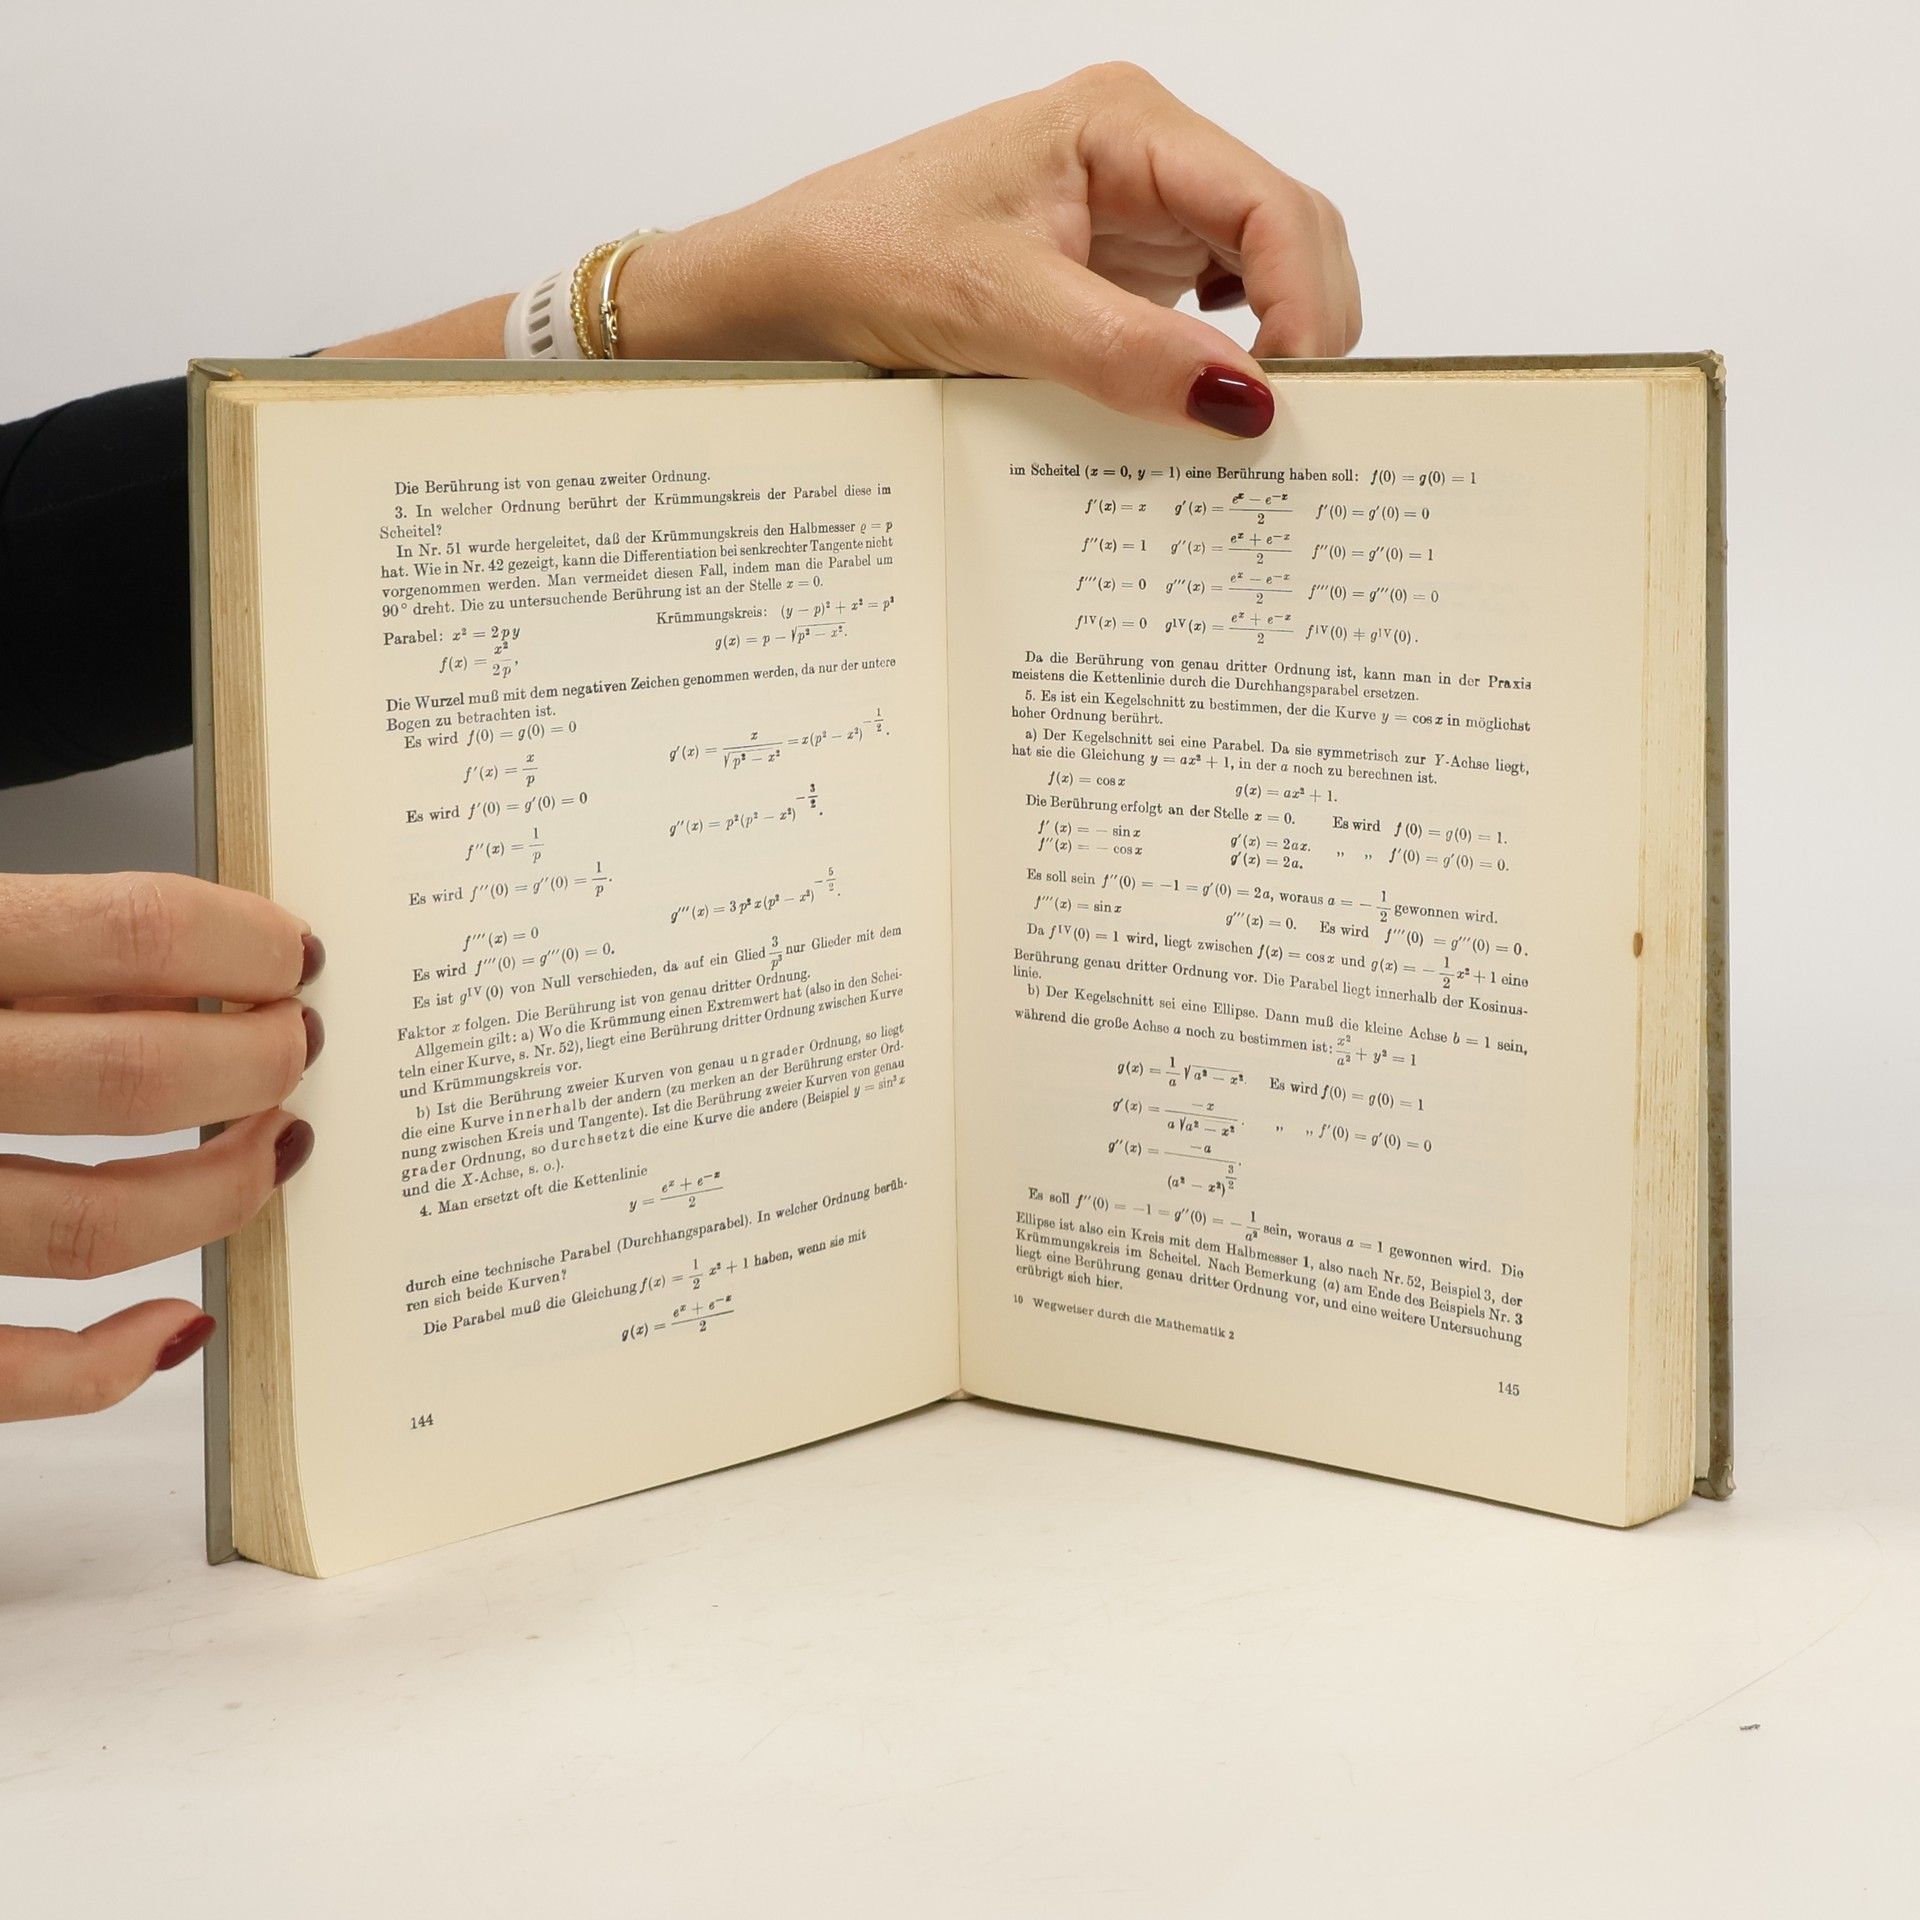 Die Berührung ist von genau zweiter Ordnung.
3. In welcher Ordnung berührt der Krümmungskreis der Parabel diese im
Scheitel?
In Nr. 51 wurde hergeleitet, daß der Krümmungskreis den Halbmesser ϱ = p
hat. Wie in Nr. 42 gezeigt, kann die Differentiation bei senkrechter Tangente nicht
vorgenommen werden. Man vermeidet diesen Fall, indem man die Parabel um
90° dreht. Die zu untersuchende Berührung ist an der Stelle x = 0.
Parabel: x² = 2py Krümmungskreis: (y − p)² + x² = p²
f(x) = x²/2p, g(x) = p − √(p² − x²).
Die Wurzel muß mit dem negativen Zeichen genommen werden, da nur der untere
Bogen zu betrachten ist.
Es wird f(0) = g(0) = 0
f′(x) = x/p g′(x) = x/√(p² − x²) = x(p² − x²)^(−1/2).
Es wird f′(0) = g′(0) = 0
f″(x) = 1/p g″(x) = p²(p² − x²)^(−3/2).
Es wird f″(0) = g″(0) = 1/p.
f‴(x) = 0 g‴(x) = 3p²x(p² − x²)^(−5/2).
Es wird f‴(0) = g‴(0) = 0.
Es ist gIV(0) von Null verschieden, da auf ein Glied 3/p³ nur Glieder mit dem
Faktor x folgen. Die Berührung ist von genau dritter Ordnung.
Allgemein gilt: a) Wo die Krümmung einen Extremwert hat (also in den Schei-
teln einer Kurve, s. Nr. 52), liegt eine Berührung dritter Ordnung zwischen Kurve
und Krümmungskreis vor.
b) Ist die Berührung zweier Kurven von genau ungrader Ordnung, so liegt
die eine Kurve innerhalb der andern (zu merken an der Berührung erster Ord-
nung zwischen Kreis und Tangente). Ist die Berührung zweier Kurven von genau
grader Ordnung, so durchsetzt die eine Kurve die andere (Beispiel y = sin³ x
und die X-Achse, s. o.).
4. Man ersetzt oft die Kettenlinie
y = (eˣ + e⁻ˣ)/2
durch eine technische Parabel (Durchhangsparabel). In welcher Ordnung berüh-
ren sich beide Kurven?
Die Parabel muß die Gleichung f(x) = 1/2 x² + 1 haben, wenn sie mit
g(x) = (eˣ + e⁻ˣ)/2
144
im Scheitel (x = 0, y = 1) eine Berührung haben soll: f(0) = g(0) = 1
f′(x) = x g′(x) = (eˣ − e⁻ˣ)/2 f′(0) = g′(0) = 0
f″(x) = 1 g″(x) = (eˣ + e⁻ˣ)/2 f″(0) = g″(0) = 1
f‴(x) = 0 g‴(x) = (eˣ − e⁻ˣ)/2 f‴(0) = g‴(0) = 0
fIV(x) = 0 gIV(x) = (eˣ + e⁻ˣ)/2 fIV(0) ≠ gIV(0).
Da die Berührung von genau dritter Ordnung ist, kann man in der Praxis
meistens die Kettenlinie durch die Durchhangsparabel ersetzen.
5. Es ist ein Kegelschnitt zu bestimmen, der die Kurve y = cos x in möglichst
hoher Ordnung berührt.
a) Der Kegelschnitt sei eine Parabel. Da sie symmetrisch zur Y-Achse liegt,
hat sie die Gleichung y = ax² + 1, in der a noch zu berechnen ist.
f(x) = cos x g(x) = ax² + 1.
Die Berührung erfolgt an der Stelle x = 0. Es wird f(0) = g(0) = 1.
f′(x) = − sin x g′(x) = 2ax. „ „ f′(0) = g′(0) = 0.
f″(x) = − cos x g′(x) = 2a.
Es soll sein f″(0) = −1 = g′(0) = 2a, woraus a = − 1/2 gewonnen wird.
f‴(x) = sin x g‴(x) = 0. Es wird f‴(0) = g‴(0) = 0.
Da fIV(0) = 1 wird, liegt zwischen f(x) = cos x und g(x) = − 1/2 x² + 1 eine
Berührung genau dritter Ordnung vor. Die Parabel liegt innerhalb der Kosinus-
linie.
b) Der Kegelschnitt sei eine Ellipse. Dann muß die kleine Achse b = 1 sein,
während die große Achse a noch zu bestimmen ist: x²/a² + y² = 1
g(x) = 1/a √(a² − x². Es wird f(0) = g(0) = 1
g′(x) = −x/(a√(a² − x²)). „ „ f′(0) = g′(0) = 0
g″(x) = −a/(a² − x²)^(3/2).
Es soll f″(0) = −1 = g″(0) = − 1/a² sein, woraus a = 1 gewonnen wird. Die
Ellipse ist also ein Kreis mit dem Halbmesser 1, also nach Nr. 52, Beispiel 3, der
Krümmungskreis im Scheitel. Nach Bemerkung (a) am Ende des Beispiels Nr. 3
liegt eine Berührung genau dritter Ordnung vor, und eine weitere Untersuchung
erübrigt sich hier.
10 Wegweiser durch die Mathematik 2
145